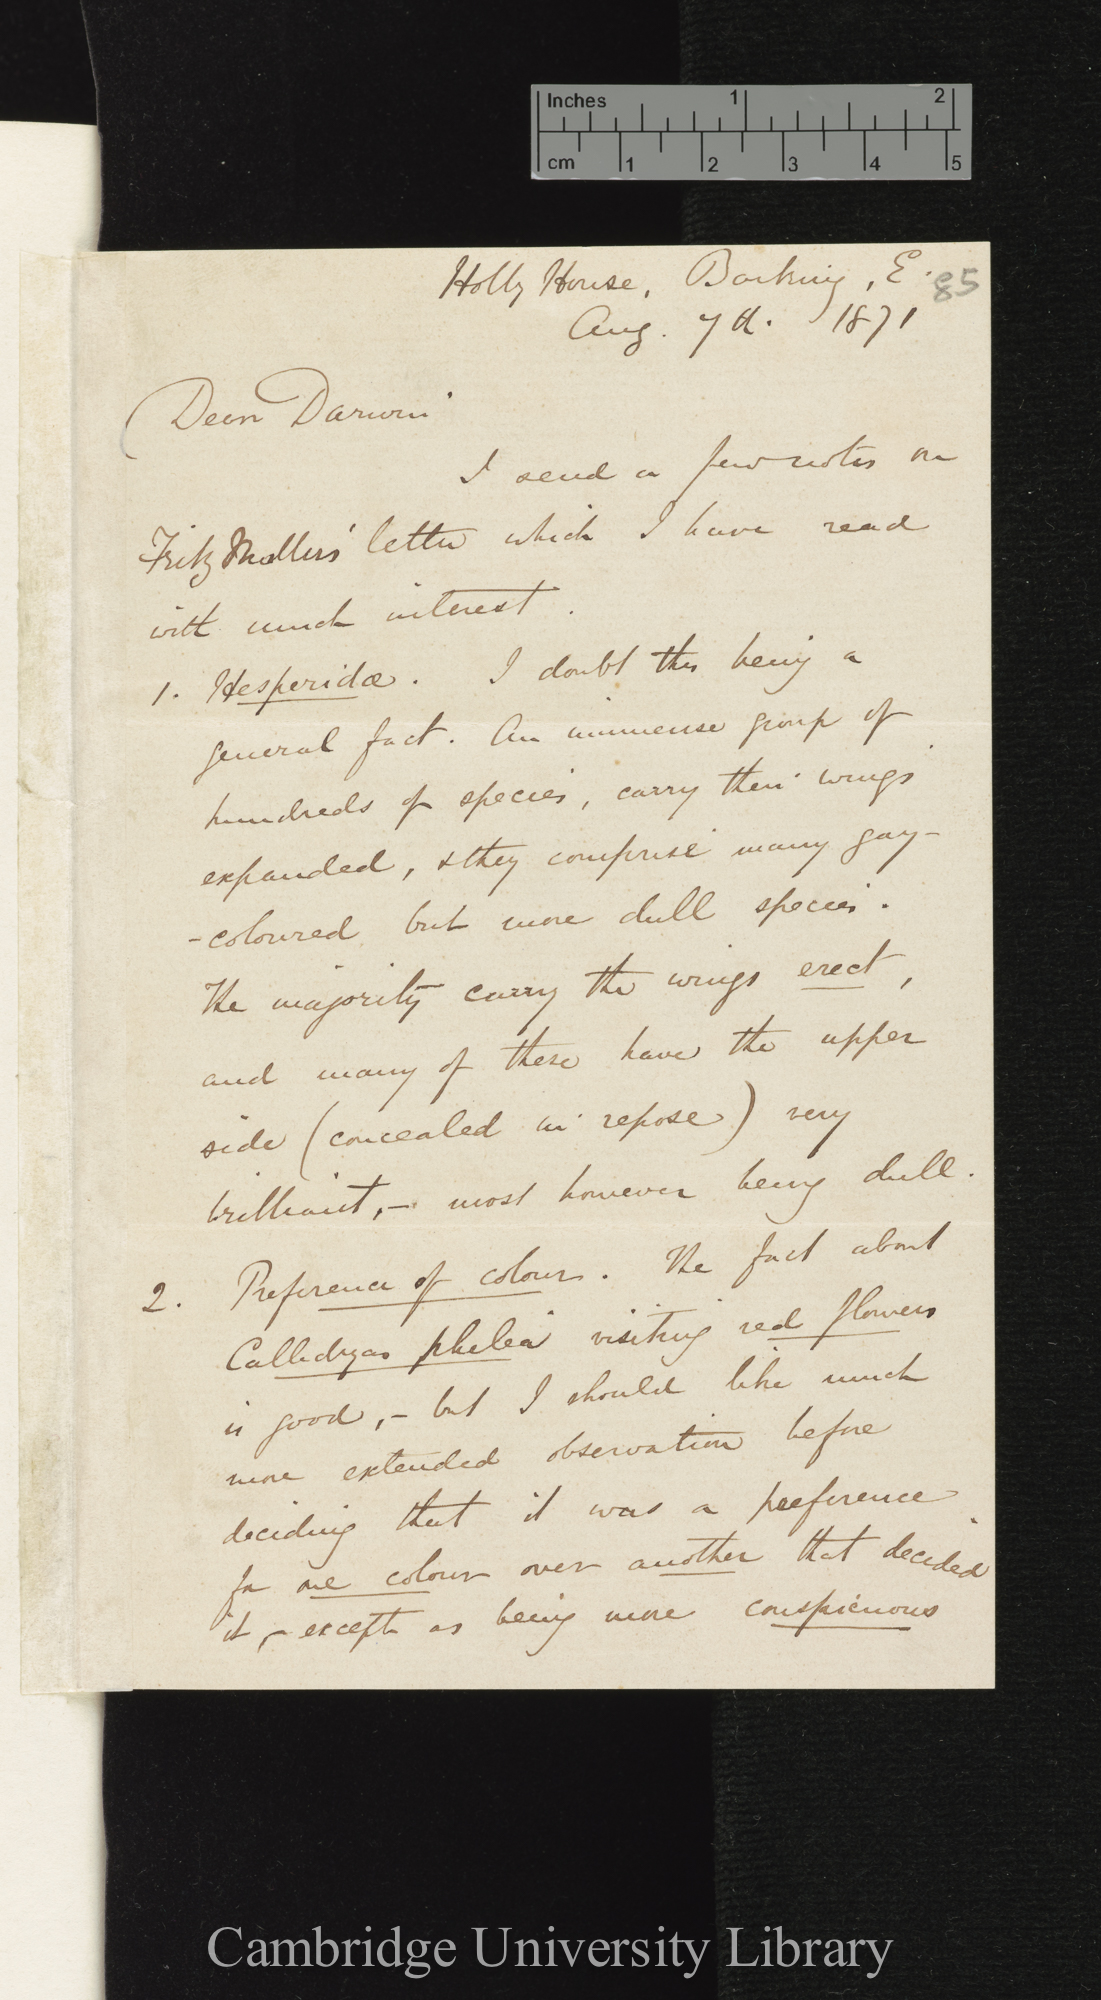 Inches 1 2
cm 1 2 3 4 5
Holly House, Barking, E.
85
Aug. 7th. 1871
Dear Darwin
I send a few notes on
Fritz Mullers' letter which I have read
with much interest.
1. Hesperidæ. I doubt this being a
general fact. An immense group of
hundreds of species, carry their wings
expanded, & they comprise many gay-
-coloured but more dull species.
The majority carry the wings erect,
and many of these have the upper
side (concealed in repose) very
brilliant,- most however being dull.
2. Preference of colour. The fact about
Callidryas philea visiting red flowers
is good,- but I should like much
more extended observation before
deciding that it was a preference
for one colour over another that decided
it,- except as being more conspicuous
Cambridge University Library